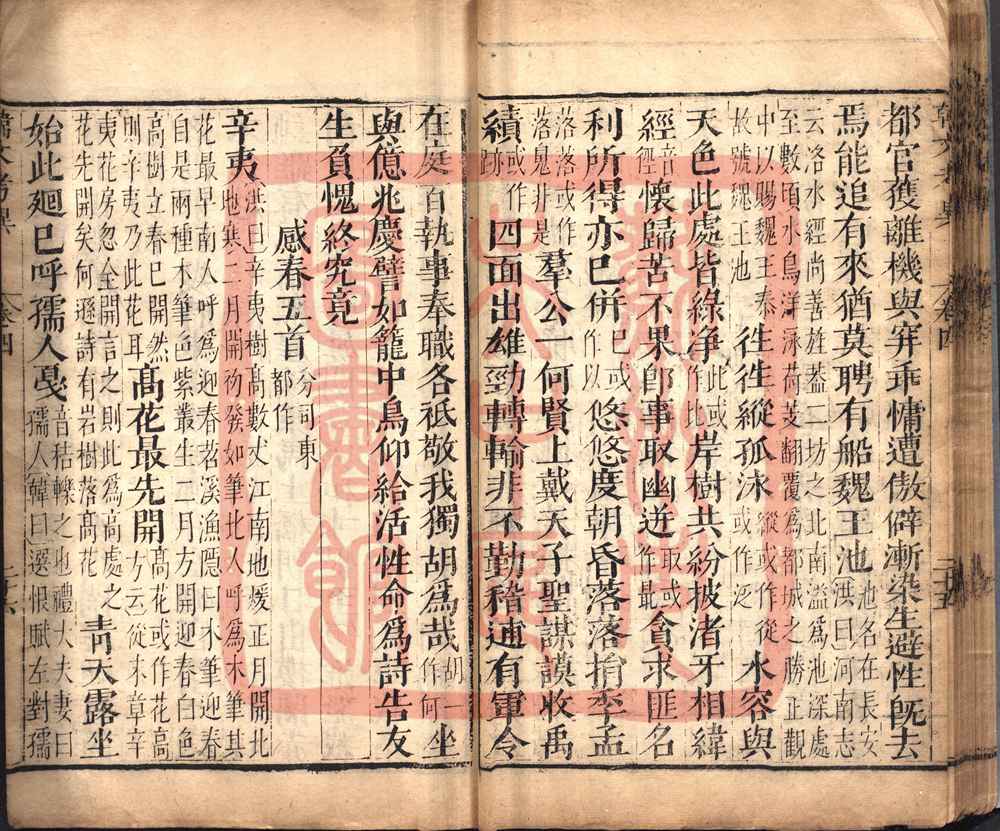 都官獲離機與穽乖慵遭傲僻漸染生避性旣去
焉能追有來猶莫聘有船魏王池洪曰河南志池名在長安
云洛水經尚善旌葢二坊之北南溢爲池深處
至數頃水鳥洋泳荷芰翻覆爲都城之勝正觀
中以賜魏王泰故號魏王池徃徃縱孤泳縱或作從泳或作泛水容與
天色此處皆綠淨此或作比岸樹共紛披渚牙相緯
經音徑懷歸苦不果卽事取幽迸取或作最貪求匪名
利所得亦已併已或作以悠悠度朝昏落落捎季孟
落落或作落鬼非是羣公一何賢上戴天子聖謀謨收禹
績或作跡四面出雄勁轉輸非不勤稽逋有軍令
在庭百執事奉職各祗敬我獨胡爲哉胡一作何坐
與億兆慶譬如籠中鳥仰給活性命爲詩告友
生負愧終究竟
感春五首分司東都作
辛夷洪曰辛夷樹高數丈江南地煖正月開北
地寒二月開初發如筆北人呼爲木筆其
花最早南人呼爲迎春苕溪漁隱曰木筆迎春
自是兩種木筆色紫叢生二月方開迎春白色
高樹立春已開然則辛夷乃此花耳高花最先開高花或作花高
方云從本草辛夷花房忽全開言之則此爲高處之
花先開矣何遜詩有岩樹落高花靑天露坐
始此廻已呼孺人戞音秸轢之地禮大夫妻曰孺人韓曰選恨賦左對孺
卷四